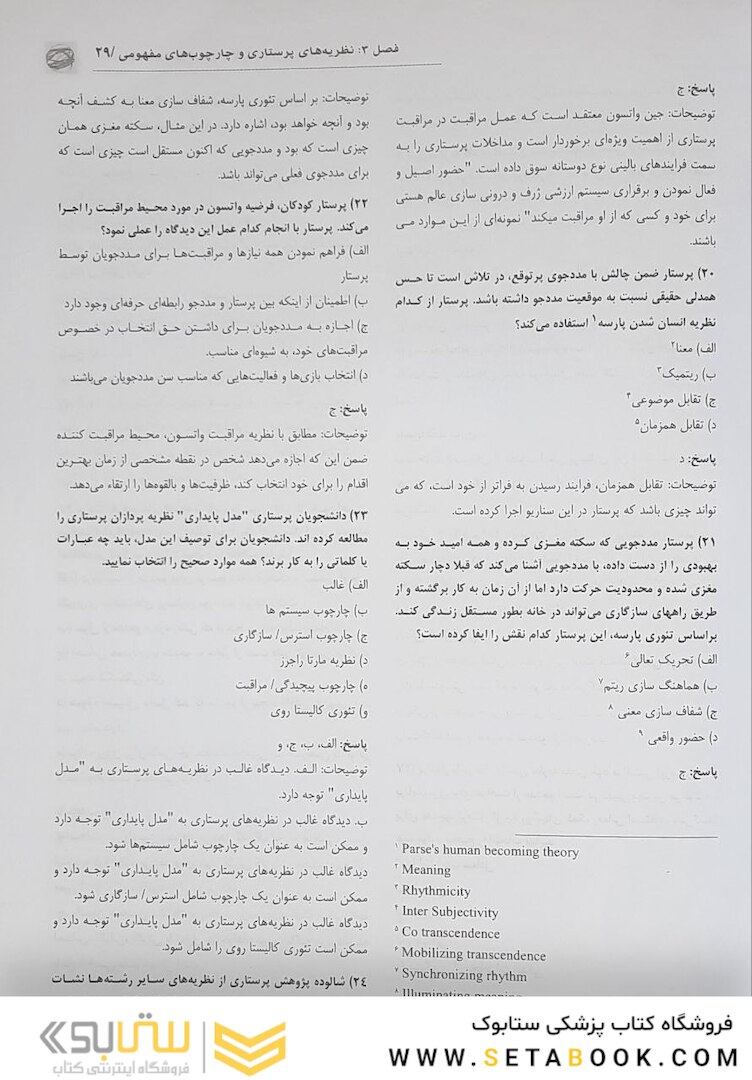 فصل ۳: نظریه‌های پرستاری و چارچوب‌های مفهومی /۲۹
پاسخ: ج
توضیحات: جین واتسون معتقد است که عمل مراقبت در مراقبت
پرستاری از اهمیت ویژه‌ای برخوردار است و مداخلات پرستاری را به
سمت فرایندهای بالینی نوع دوستانه سوق داده است. "حضور اصیل و
فعال نمودن و برقراری سیستم ارزشی ژرف و درونی سازی عالم هستی
برای خود و کسی که از او مراقبت میکند" نمونه‌ای از این موارد می
باشند.
۲۰) پرستار ضمن چالش با مددجوی پرتوقع، در تلاش است تا حس
همدلی حقیقی نسبت به موقعیت مددجو داشته باشد. پرستار از کدام
نظریه انسان شدن پارسه۱ استفاده می‌کند؟
الف) معنا۲
ب) ریتمیک۳
ج) تقابل موضوعی۴
د) تقابل همزمان۵
پاسخ: د
توضیحات: تقابل همزمان، فرایند رسیدن به فراتر از خود است، که می
تواند چیزی باشد که پرستار در این سناریو اجرا کرده است.
۲۱) پرستار مددجویی که سکته مغزی کرده و همه امید خود به
بهبودی را از دست داده، با مددجویی آشنا می‌کند که قبلا دچار سکته
مغزی شده و محدودیت حرکت دارد اما از آن زمان به کار برگشته و از
طریق راههای سازگاری می‌تواند در خانه بطور مستقل زندگی کند.
براساس تئوری پارسه، این پرستار کدام نقش را ایفا کرده است؟
الف) تحریک تعالی۶
ب) هماهنگ سازی ریتم۷
ج) شفاف سازی معنی ۸
د) حضور واقعی ۹
پاسخ: ج
۱ Parse's human becoming theory
۲ Meaning
۳ Rhythmicity
۴ Inter Subjectivity
۵ Co transcendence
۶ Mobilizing transcendence
۷ Synchronizing rhythm
۸ Illuminating meaning
توضیحات: بر اساس تئوری پارسه، شفاف سازی معنا به کشف آنچه
بود و آنچه خواهد بود، اشاره دارد. در این مثال، سکته مغزی همان
چیزی است که بود و مددجویی که اکنون مستقل است چیزی است که
برای مددجوی فعلی می‌تواند باشد.
۲۲) پرستار کودکان، فرضیه واتسون در مورد محیط مراقبت را اجرا
می‌کند. پرستار با انجام کدام عمل این دیدگاه را عملی نمود؟
الف) فراهم نمودن همه نیازها و مراقبت‌ها برای مددجویان توسط
پرستار
ب) اطمینان از اینکه بین پرستار و مددجو رابطه‌ای حرفه‌ای وجود دارد
ج) اجازه به مددجویان برای داشتن حق انتخاب در خصوص
مراقبت‌های خود، به شیوه‌ای مناسب.
د) انتخاب بازی‌ها و فعالیت‌هایی که مناسب سن مددجویان می‌باشند
پاسخ: ج
توضیحات: مطابق با نظریه مراقبت واتسون، محیط مراقبت کننده
ضمن این که اجازه می‌دهد شخص در نقطه مشخصی از زمان بهترین
اقدام را برای خود انتخاب کند، ظرفیت‌ها و بالقوه‌ها را ارتقاء می‌دهد.
۲۳) دانشجویان پرستاری "مدل پایداری" نظریه پردازان پرستاری را
مطالعه کرده اند. دانشجویان برای توصیف این مدل، باید چه عبارات
یا کلماتی را به کار برند؟ همه موارد صحیح را انتخاب نمایید.
الف) غالب
ب) چارچوب سیستم ها
ج) چارچوب استرس/ سازگاری
د) نظریه مارتا راجرز
ه) چارچوب پیچیدگی/ مراقبت
و) تئوری کالیستا روی
پاسخ: الف، ب، ج، و
توضیحات: الف. دیدگاه غالب در نظریه‌های پرستاری به "مدل
پایداری" توجه دارد.
ب. دیدگاه غالب در نظریه‌های پرستاری به "مدل پایداری" توجه دارد
و ممکن است به عنوان یک چارچوب شامل سیستم‌ها شود.
دیدگاه غالب در نظریه‌های پرستاری به "مدل پایداری" توجه دارد و
ممکن است به عنوان یک چارچوب شامل استرس/ سازگاری شود.
دیدگاه غالب در نظریه‌های پرستاری به "مدل پایداری" توجه دارد و
ممکن است تئوری کالیستا روی را شامل شود.
۲۴) شالوده پژوهش پرستاری از نظریه‌های سایر رشته‌ها نشات
فروشگاه کتاب پزشکی ستابوک
WWW.SETABOOK.COM
ستابوک
فروشگاه اینترنتی کتاب